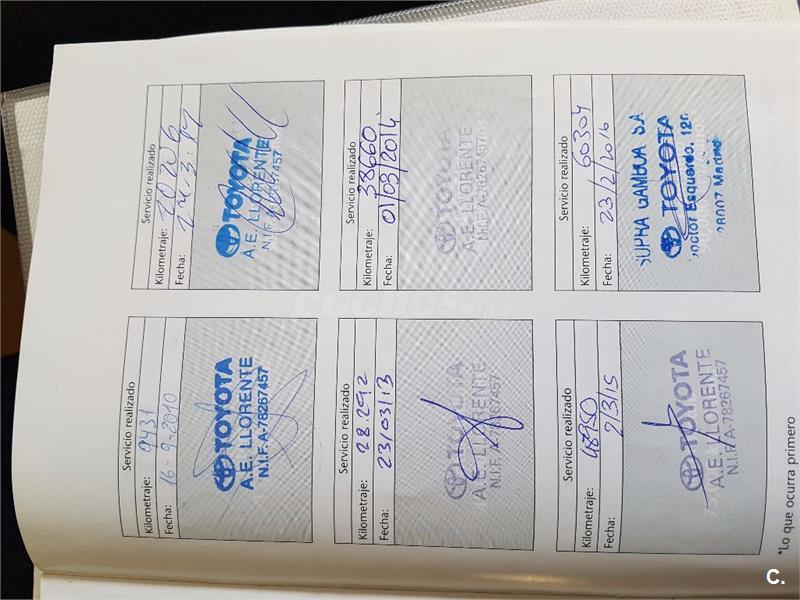 Servicio realizado
Kilometraje: 9431
Fecha: 16-9-2010
TOYOTA
A.E. LLORENTE
N.I.F. A-78267457
Servicio realizado
Kilometraje:
Fecha:
TOYOTA
A.E. LLORENTE
N.I.F.
Servicio realizado
Kilometraje: 28.292
Fecha: 23/03/13
TOYOTA
A.E. LLORENTE
N.I.F. A-78267457
Servicio realizado
Kilometraje: 38660
Fecha: 01/03/2014
TOYOTA
A.E. LLORENTE
N.I.F. A-78267457
Servicio realizado
Kilometraje: 48950
Fecha: 2/3/15
TOYOTA
A.E. LLORENTE
N.I.F. A-78267457
Servicio realizado
Kilometraje: 60304
Fecha: 23/2/2016
SUPRA GAMBOA SA
TOYOTA
octor Esquerdo, 12
28007 Madrid
*Lo que ocurra primero
coches.net
C.